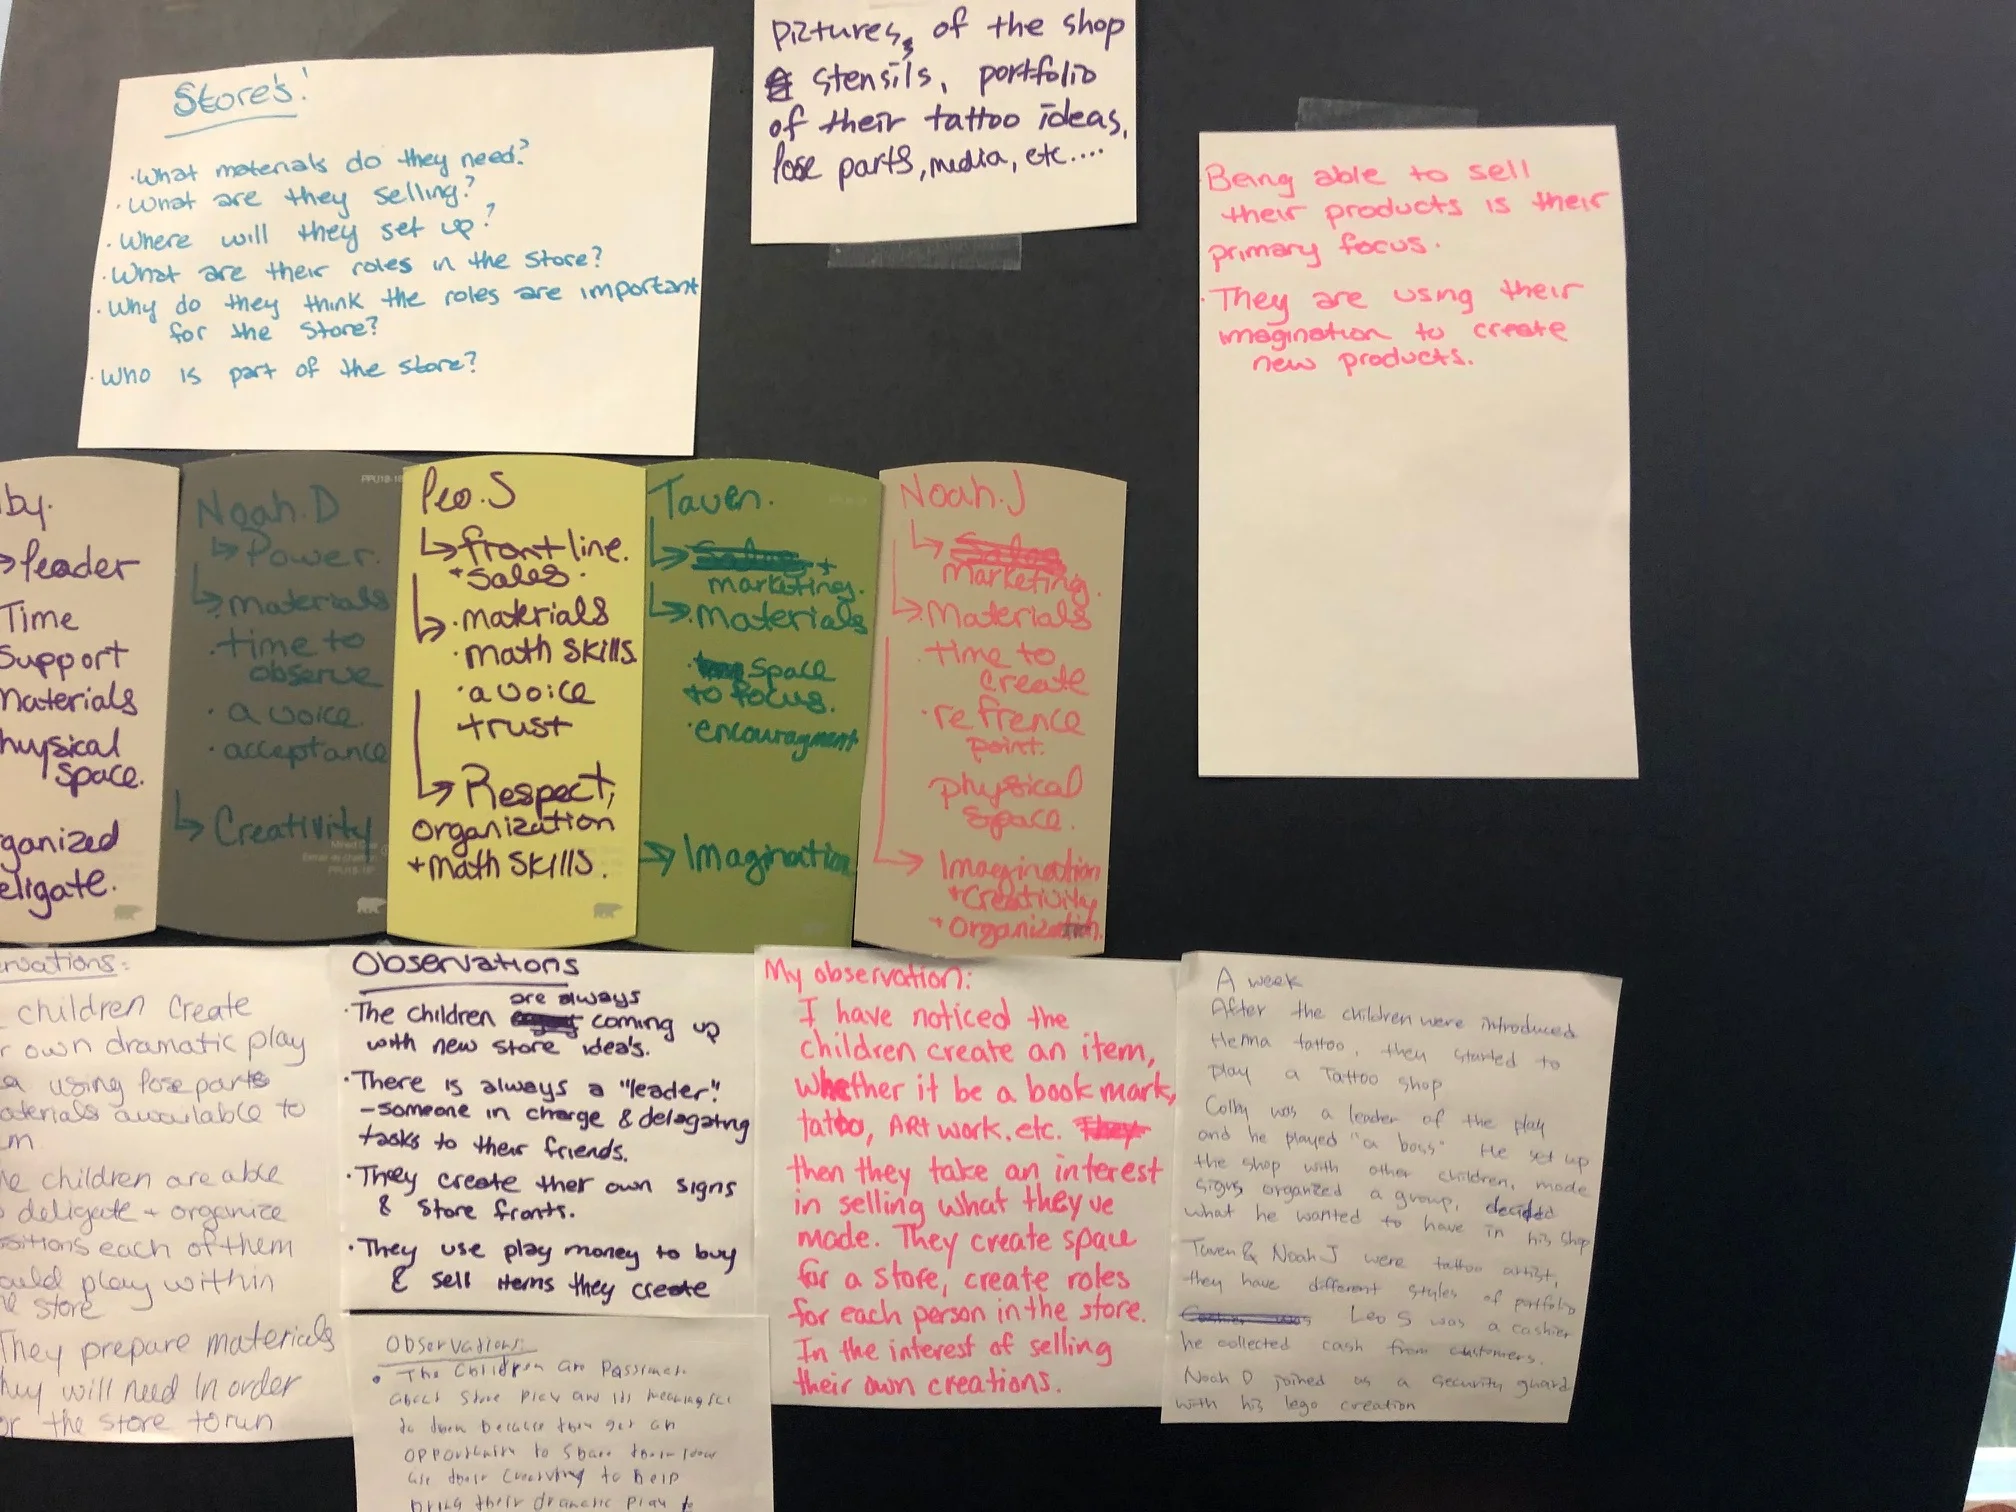 Store's!
·What materials do they need?
·What are they selling?
·Where will they set up?
·What are their roles in the store?
·Why do they think the roles are important
for the Store?
·Who is part of the store?
Pictures, of the shop
stensils, portfolio
of their tattoo ideas,
lose parts, media, etc....
·Being able to sell
their products is their
primary focus.
·They are using their
imagination to create
new products.
by.
→leader
Time
Support
Materials
hysical
space.
ganized
eligate.
Noah.D
↳Power.
↳materials
·time to
observe
·a voice
·acceptance
↳Creativity
Leo.S
↳frontline.
+sales.
↳·materials
·math skills
·a voice
trust
↳Respect,
organization
+math skills.
Taven.
↳ +
marketing.
↳Materials
space
to focus.
·encouragment
→Imagination
Noah.J
↳
marketing.
→Materials
·time to
create
·refrence
point.
physical
space.
→Imagination
+Creativity
+organization.
rvations:
children create
r own dramatic play
a using lose parts
aterials available to
m
e children are able
deligate + organize
sitions each of them
ould play within
he store
They prepare materials
hey will need in order
or the store to run
Observations
are always
·The children coming up
with new store idea's.
·There is always a "leader".
-someone in charge & delegating
tasks to their friends.
·They create ther own signs
& store fronts.
·They use play money to buy
& sell items they create
Observations:
• The children are passionate
about store play and its meaningful
to them because they get an
opportunity to share their ideas
use their creativity to help
bring their dramatic play to
My observation:
I have noticed the
children create an item,
whether it be a book mark,
tattoo, ARt work. etc.
then they take an interest
in selling what they've
made. They create space
for a store, create roles
for each person in the store.
In the interest of selling
their own creations.
A week
After the children were introduced
Henna tattoo, they started to
play a Tattoo shop
Colby was a leader of the play
and he played "a boss" He set up
the shop with other children, made
signs organized a group, decided
what he wanted to have in his shop
Taven & Noah J were tattoo artist,
they have different styles of portfolio
Leo S was a cashier
he collected cash from customers.
Noah D joined as a security guard
with his lego creation